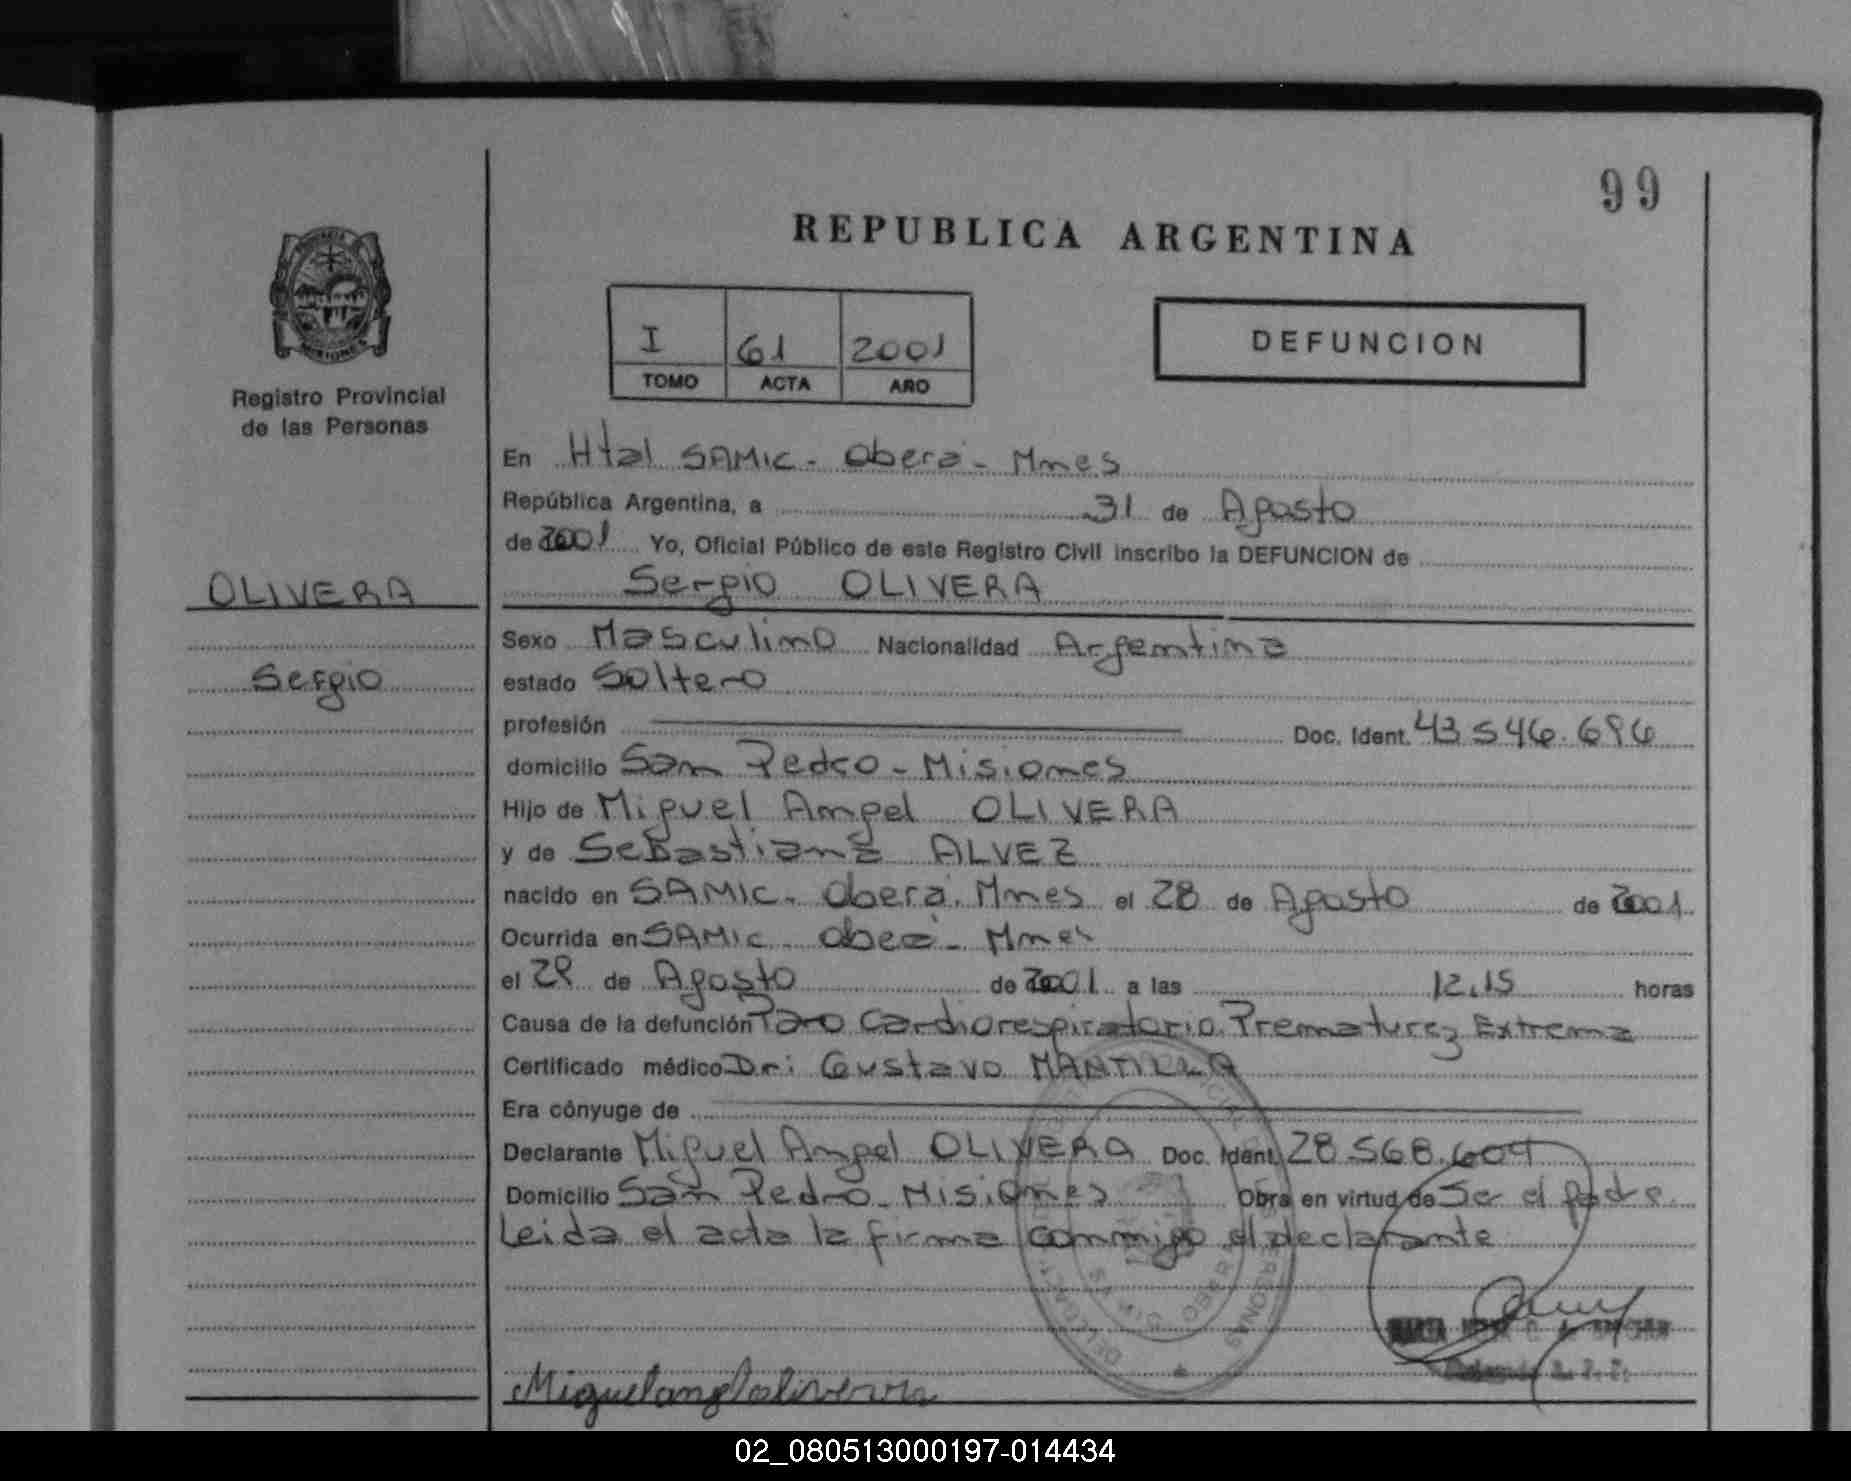 99
REPUBLICA ARGENTINA
I 61 2001
TOMO ACTA AÑO
DEFUNCION
Registro Provincial
de las Personas
OLIVERA
Sergio
En Htal SAMIC - Oberá - Mnes
República Argentina, a 31 de Agosto
de 2001 Yo, Oficial Público de este Registro Civil inscribo la DEFUNCION de
Sergio OLIVERA
Sexo Masculino Nacionalidad Argentina
estado Soltero
profesión Doc. Ident. 43 546.696
domicilio San Pedro - Misiones
Hijo de Miguel Angel OLIVERA
y de Sebastiana ALVEZ
nacido en SAMIC - Oberá. Mnes el 28 de Agosto de 2001
Ocurrida en SAMIC - Obeá - Mnes
el 29 de Agosto de 2001 a las 12.15 horas
Causa de la defunción Paro Cardiorespiratorio. Prematurez Extrema
Certificado médico Dr: Gustavo MANTILLA
Era cónyuge de
Declarante Miguel Angel OLIVERA Doc. Ident. 28 568.609
Domicilio San Pedro - Misiones Obra en virtud de Ser el padre
Leida el acta la firma conmigo el declarante
Miguel angel olivera
02_080513000197-014434